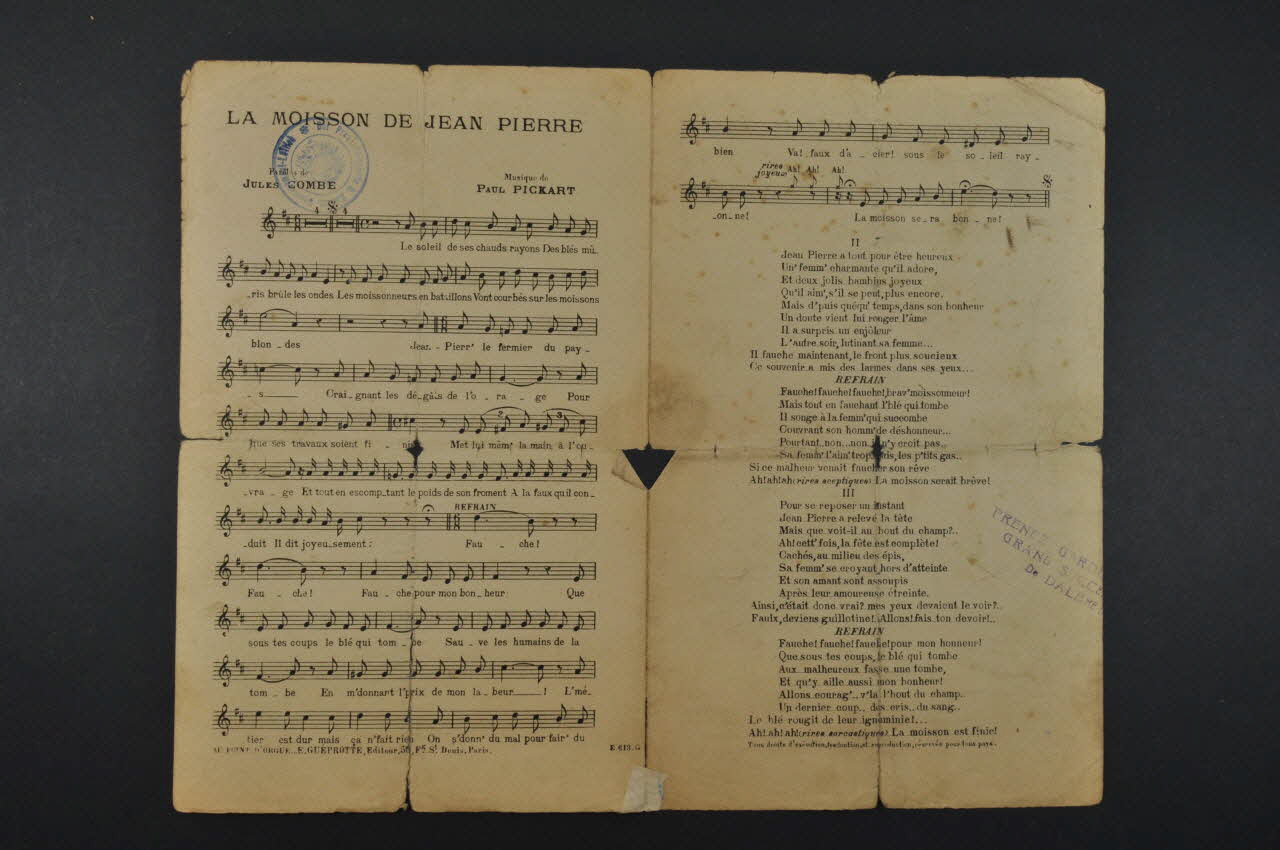 LA MOISSON DE JEAN PIERRE
Paroles de
JULES COMBE
Musique de
PAUL PICKART
Le soleil de ses chauds rayons Des blés mû_
_ris brûle les ondes Les moissonneurs en bataillons Vont courbés sur les moissons
blon_des Jean_Pierr' le fermier du pay_
_s Crai_gnant les dé_gâts de l'o_ra_ge Pour
que ses travaux soient fi_nis Met lui mêm' la main à l'ou_
_vra_ge Et tout en escomp_tant le poids de son froment A la faux qu'il con_
_duit Il dit joyeu_sement:
REFRAIN
Fau_che!
Fau_che! Fau_che pour mon bon_heur Que
sous tes coups le blé qui tom_be Sau_ve les humains de la
tom_be En m'donnant l'prix de mon la_beur! L'mé_
tier est dur mais ça n'fait rien On s'donn' du mal pour fair' du
AU POINT D'ORGUE_E.GUEPROTTE, Editeur, 50, Fg St Denis, Paris.
E 613.G
bien Va! faux d'a_cier! sous le so_leil ray_
rires joyeux Ah! Ah! Ah!
_on_ne! La moisson se_ra bon_ne!
II
Jean Pierre a tout pour être heureux
Un' femm' charmante qu'il adore,
Et deux jolis bambins joyeux
Qu'il aim', s'il se peut, plus encore.
Mais d'puis quéqu' temps, dans son bonheur
Un doute vient lui ronger l'âme
Il a surpris un enjôleur
L'autre soir, lutinant sa femme...
Il fauche maintenant, le front plus soucieux
Ce souvenir a mis des larmes dans ses yeux...
REFRAIN
Fauche! fauche! fauche! brav' moissonneur!
Mais tout en fauchant l'blé qui tombe
Il songe à la femm' qui succombe
Couvrant son homm' de déshonneur...
Pourtant..non...non.. n'y croit pas..
Sa femm' l'aim' trop les p'tits gas..
Si ce malheur venait faucher son rêve
Ah! ah! ah! (rires sceptiques) La moisson serait brève!
III
Pour se reposer un instant
Jean Pierre a relevé la tête
Mais que voit-il au bout du champ?..
Ah! cett' fois, la fête est complète!
Cachés, au milieu des épis,
Sa femm' se croyant hors d'atteinte
Et son amant sont assoupis
Après leur amoureuse étreinte.
Ainsi, c'était donc vrai? mes yeux devaient le voir?..
Faulx, deviens guillotine!. Allons! fais ton devoir!..
REFRAIN
Fauche! fauche! fauche! pour mon honneur!
Que sous tes coups, le blé qui tombe
Aux malheureux fasse une tombe,
Et qu'y aille aussi mon bonheur!
Allons courag'.. v'la l'bout du champ..
Un dernier coup.. des cris.. du sang..
Le blé rougit de leur ignominie!...
Ah! ah! ah! (rires sarcastiques) La moisson est finie!
Tous droits d'exécution, traduction, et reproduction, réservés pour tous pays.
PRENEZ
GRAND
De